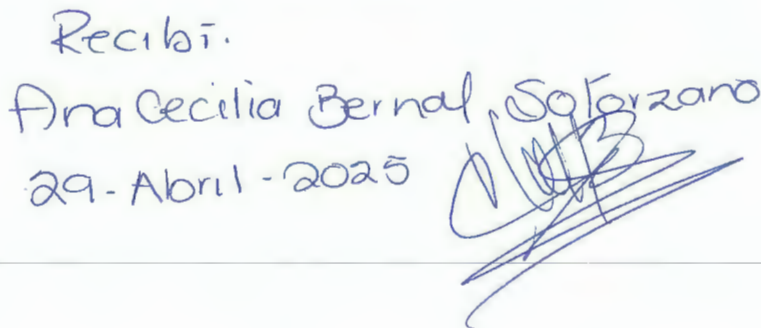 Recibí.
Ana Cecilia Bernal Solorzano
29-Abril-2025